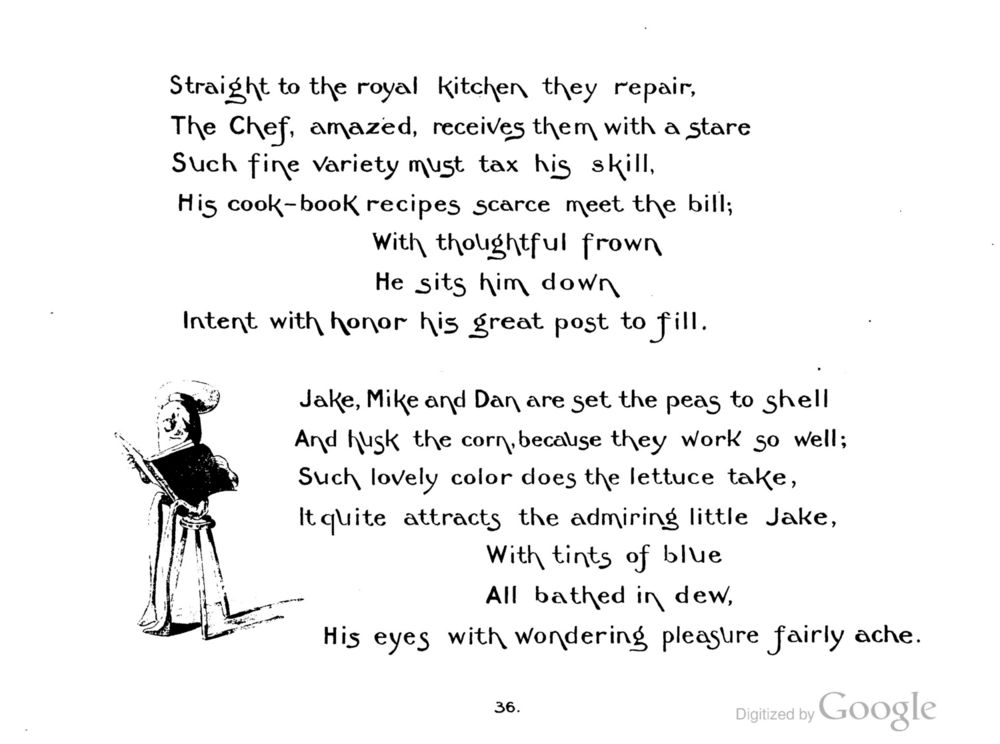 Straight to the royal kitchen they repair,
The Chef, amazed, receives them with a stare
Such fine variety must tax his skill,
His cook-book recipes scarce meet the bill;
With thoughtful frown
He sits him down
Intent with honor his great post to fill.
Jake, Mike and Dan are set the peas to shell
And husk the corn, because they work so well;
Such lovely color does the lettuce take,
It quite attracts the admiring little Jake,
With tints of blue
All bathed in dew,
His eyes with wondering pleasure fairly ache.
36.
Digitized by Google